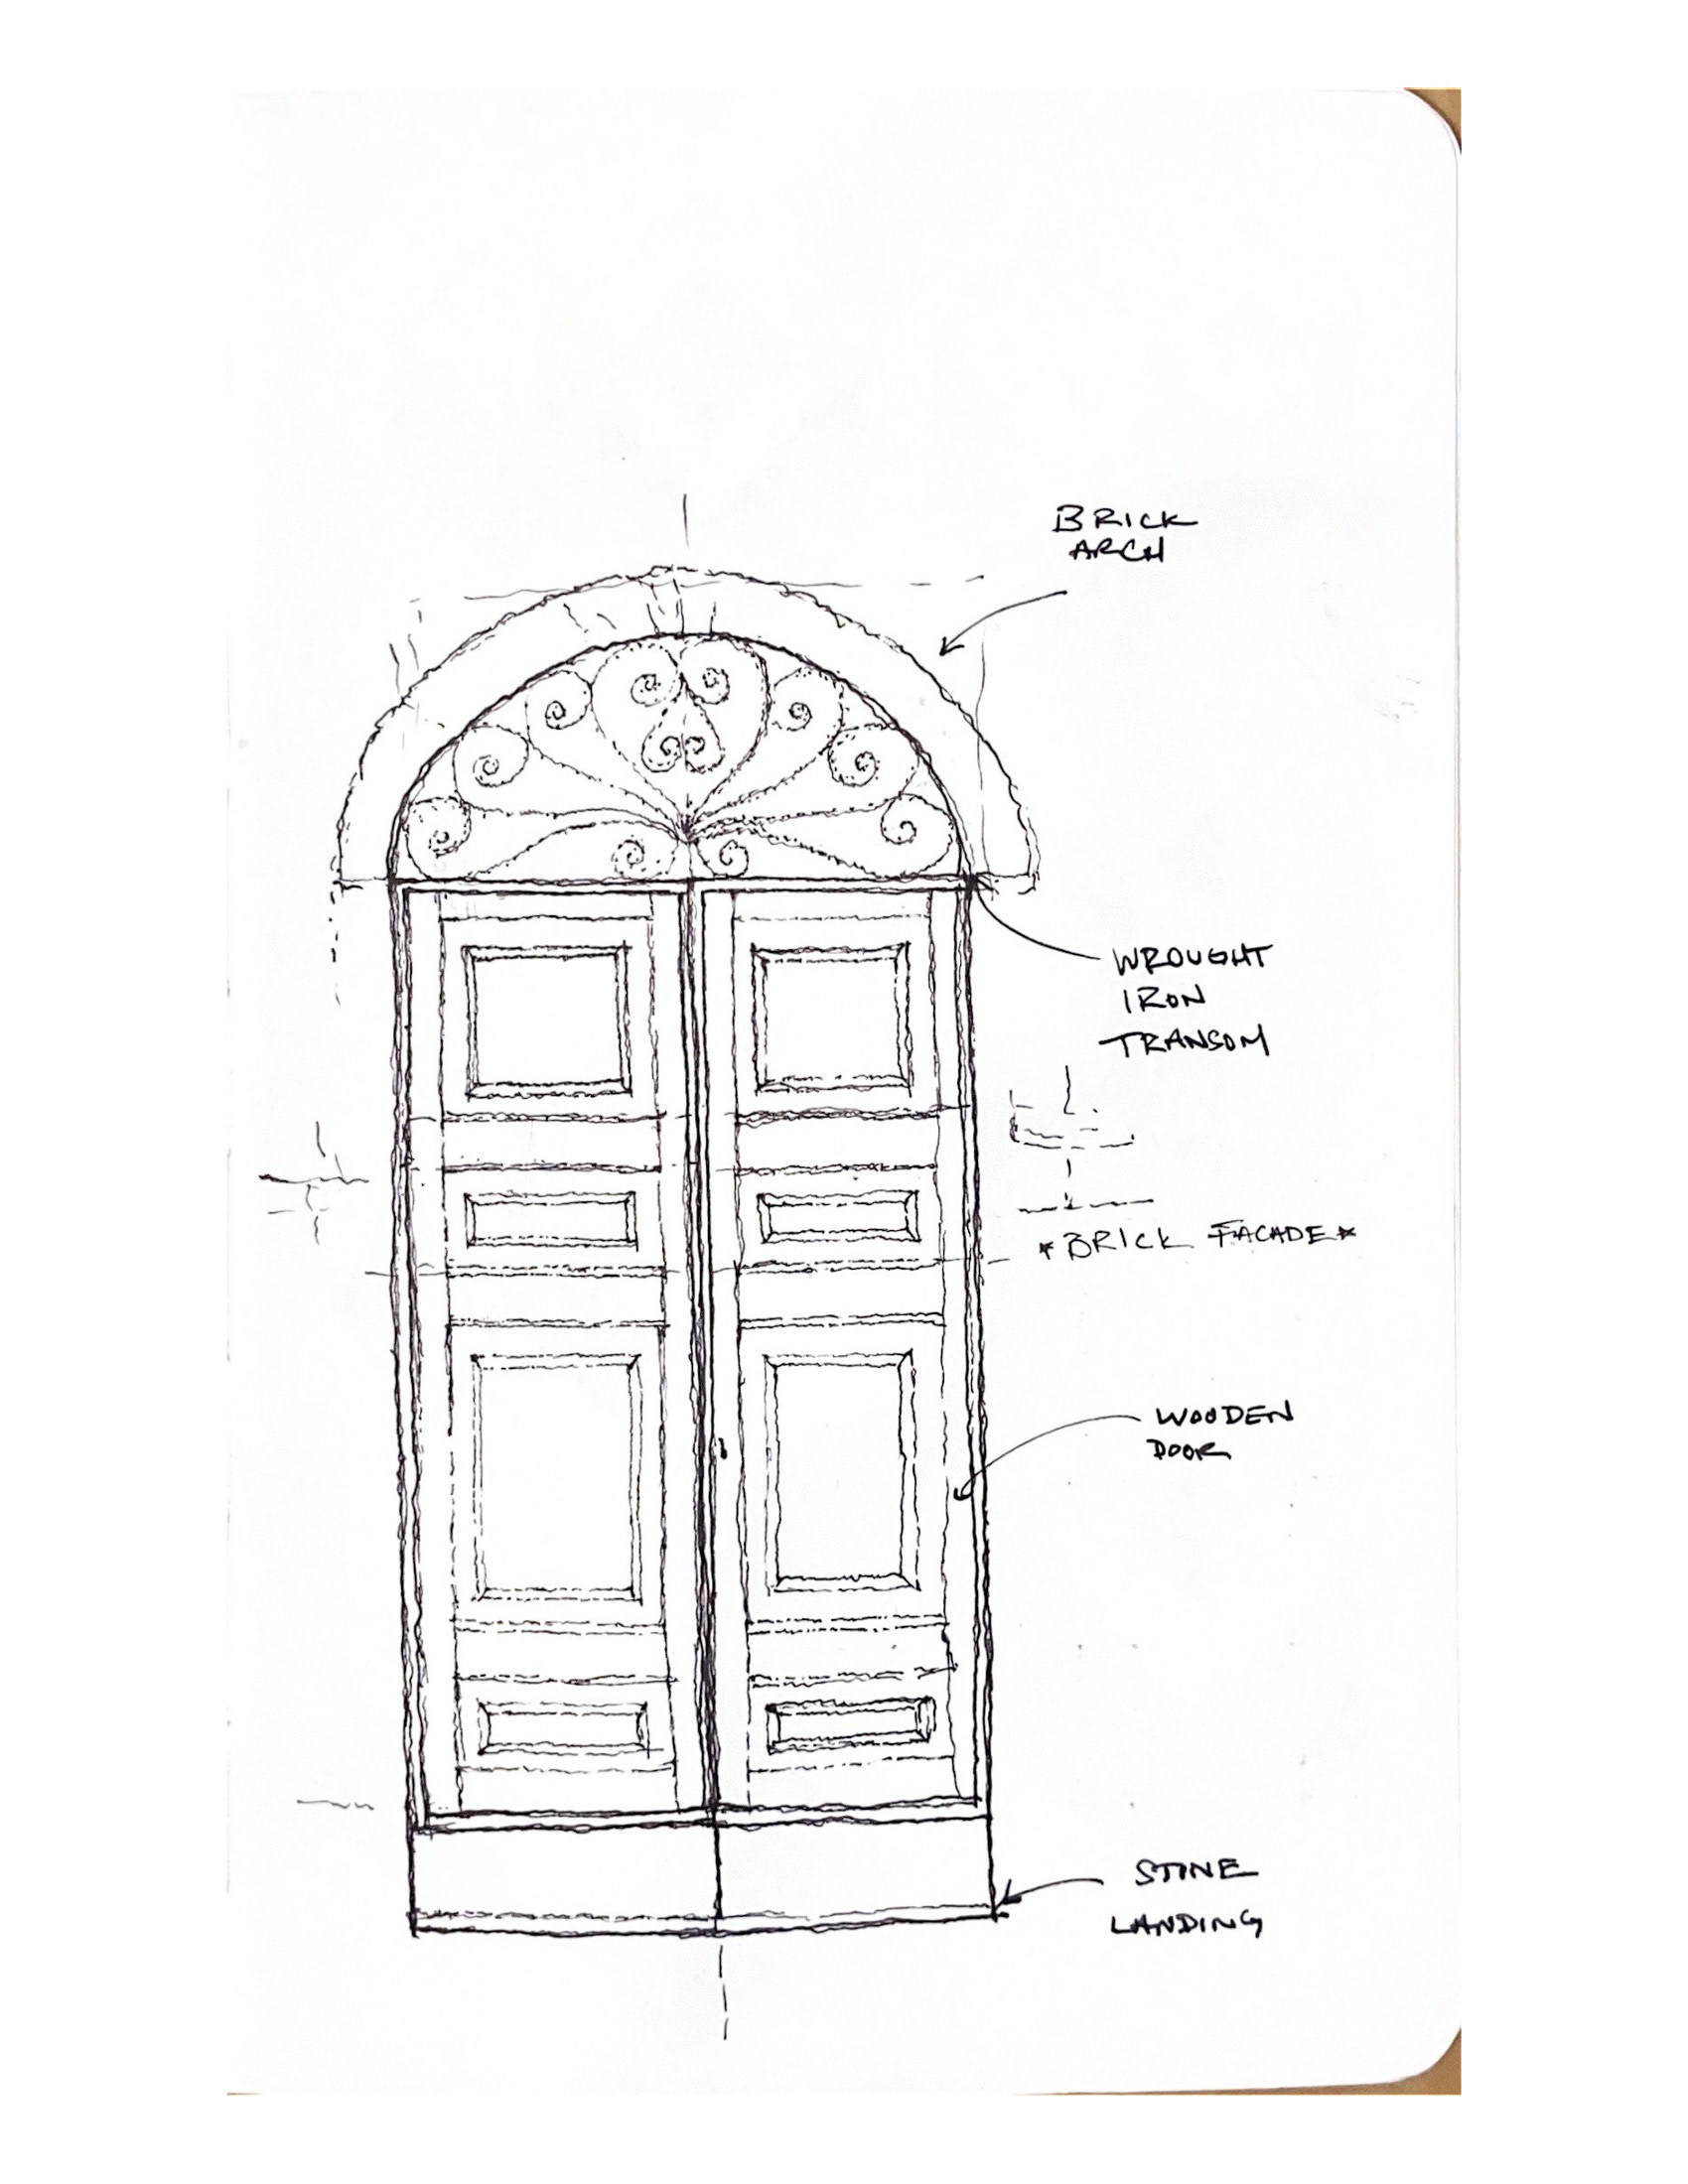 BRICK
ARCH
WROUGHT
IRON
TRANSOM
*BRICK FACADE*
WOODEN
DOOR
STONE
LANDING